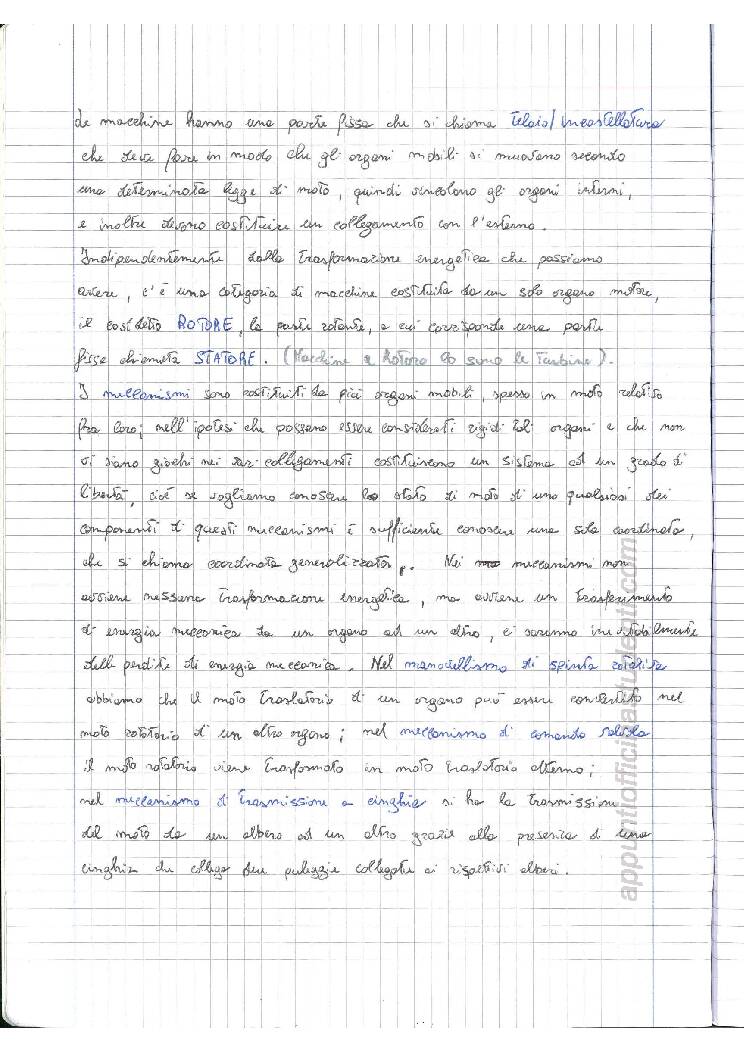 Le macchine hanno una parte fissa che si chiama telaio/incastellatura
che deve fare in modo che gli organi mobili si muovano secondo
una determinata legge di moto, quindi vincolano gli organi interni,
e inoltre devono costituire un collegamento con l'esterno.
Indipendentemente dalla trasformazione energetica che possiamo
avere, c'è una categoria di macchine costituita da un solo organo motore,
il cosidetto ROTORE, la parte rotante, a cui corrisponde una parte
fissa chiamata STATORE. (Macchine a Rotore sono le Turbine).
I meccanismi sono costituiti da più organi mobili, spesso in moto relativo
fra loro; nell'ipotesi che possano essere considerati rigidi tali organi e che non
vi siano giochi nei vari collegamenti costituiscono un sistema ad un grado di
libertà, cioè se vogliamo conoscere lo stato di moto di uno qualsiasi dei
componenti di questi meccanismi è sufficiente conoscere una sola coordinata,
che si chiama coordinata generalizzata. Nei meccanismi non
avviene nessuna trasformazione energetica, ma avviene un trasferimento
di energia meccanica da un organo ad un altro, ci saranno inevitabilmente
delle perdite di energia meccanica. Nel manovellismo di spinta rotativa
abbiamo che il moto traslatorio di un organo può essere convertito nel
moto rotatorio di un altro organo; nel meccanismo di comando valvola
il moto rotatorio viene trasformato in moto traslatorio alterno;
nel meccanismo di trasmissione a cinghia si ha la trasmissione
del moto da un albero ad un altro grazie alla presenza di una
cinghia che collega due puleggie collegate ai rispettivi alberi.
appuntiofficinastudenti.com